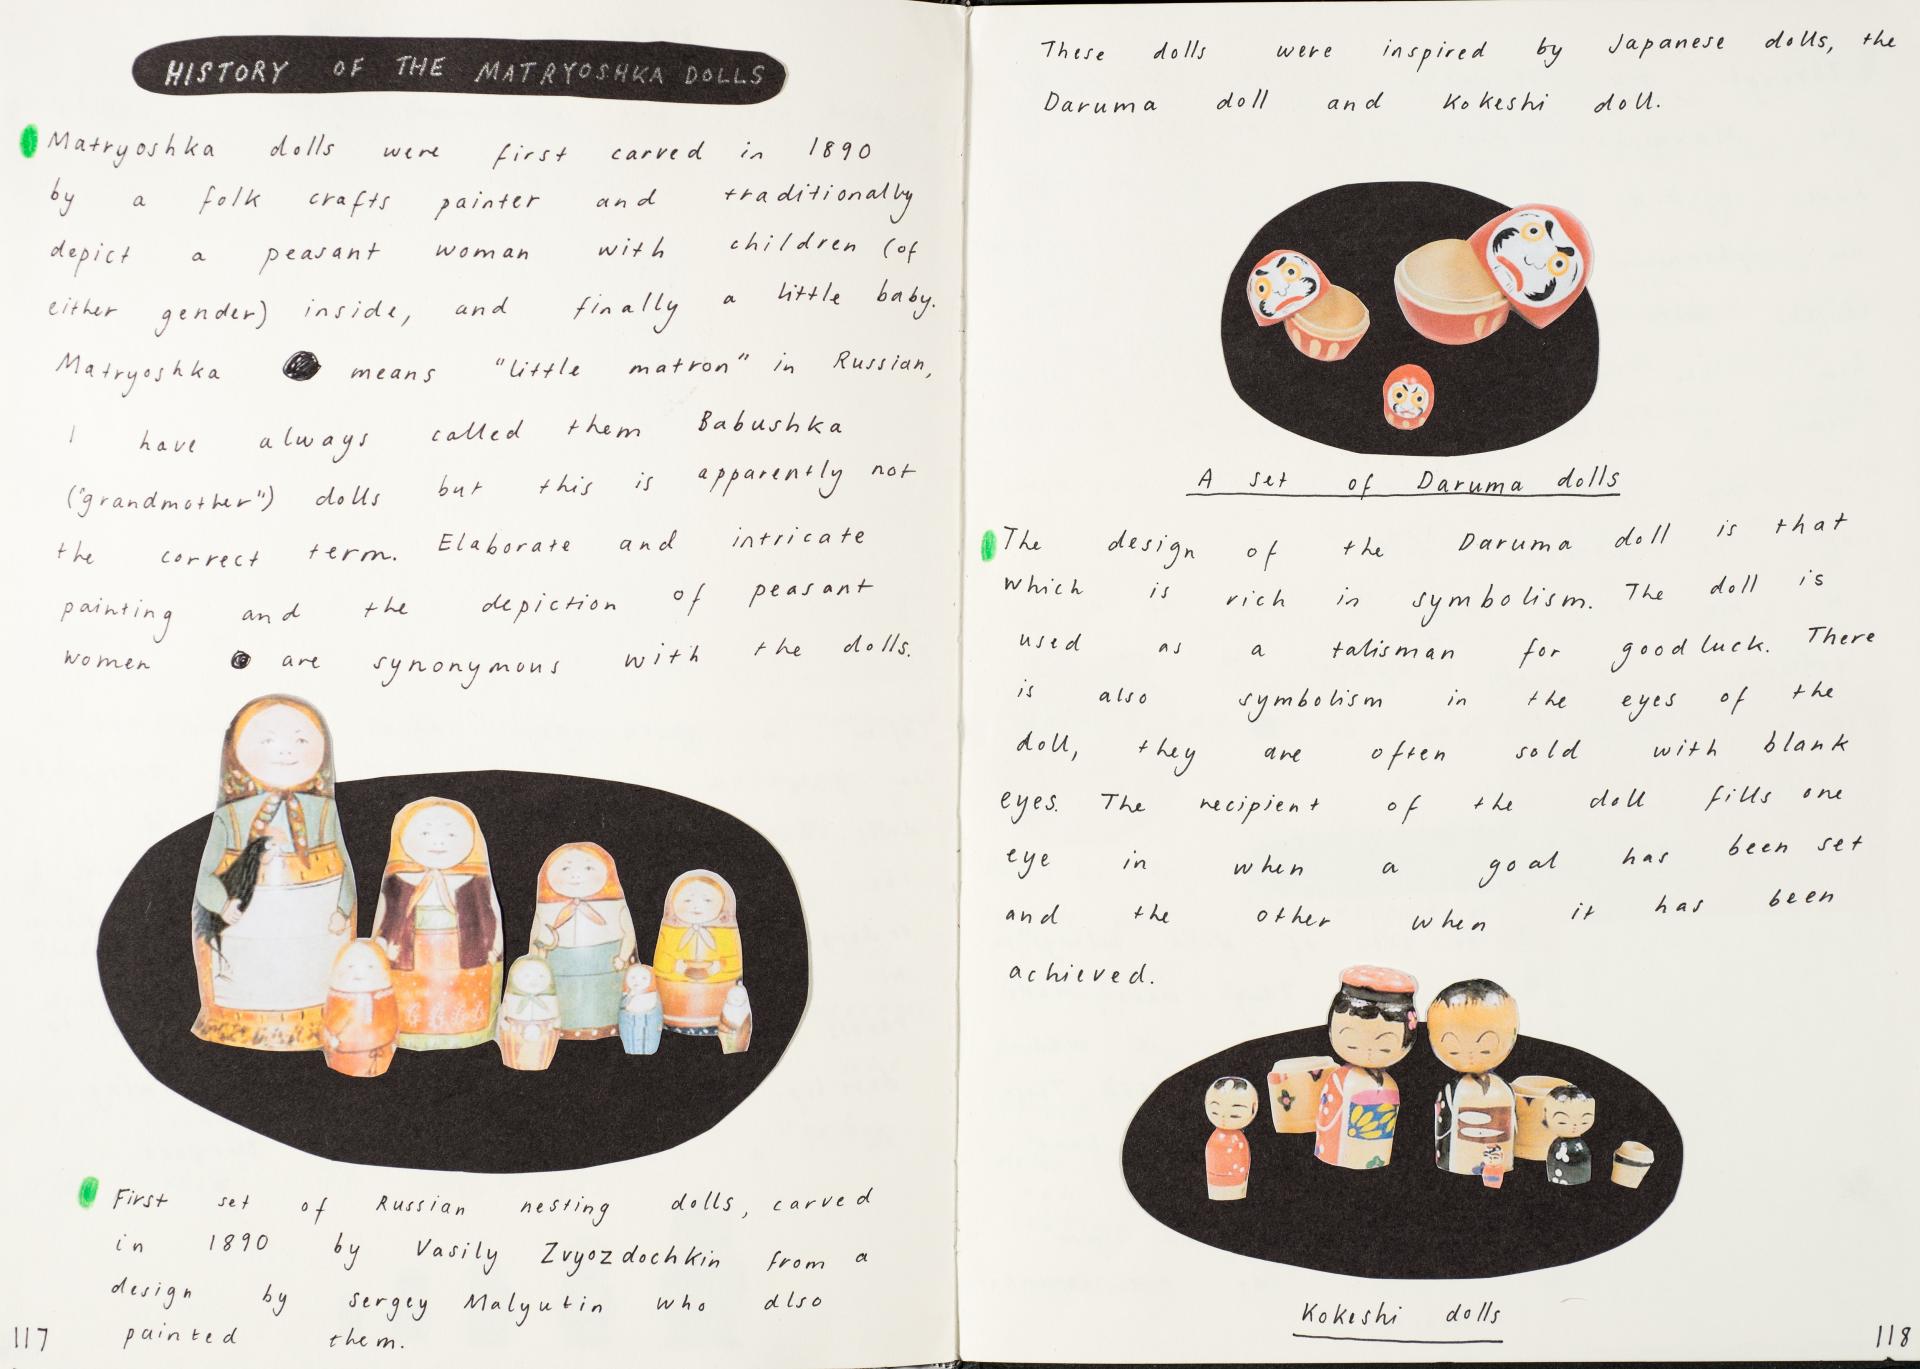 HISTORY OF THE MATRYOSHKA DOLLS
Matryoshka dolls were first carved in 1890
by a folk crafts painter and traditionally
depict a peasant woman with children (of
either gender) inside, and finally a little baby.
Matryoshka means "little matron" in Russian,
I have always called them Babushka
("grandmother") dolls but this is apparently not
the correct term. Elaborate and intricate
painting and the depiction of peasant
women are synonymous with the dolls.
First set of Russian nesting dolls, carved
in 1890 by Vasily Zvyozdochkin from a
design by Sergey Malyutin who also
painted them.
117
These dolls were inspired by Japanese dolls, the
Daruma doll and Kokeshi doll.
A set of Daruma dolls
The design of the Daruma doll is that
which is rich in symbolism. The doll is
used as a talisman for good luck. There
is also symbolism in the eyes of the
doll, they are often sold with blank
eyes. The recipient of the doll fills one
eye in when a goal has been set
and the other when it has been
achieved.
Kokeshi dolls
118